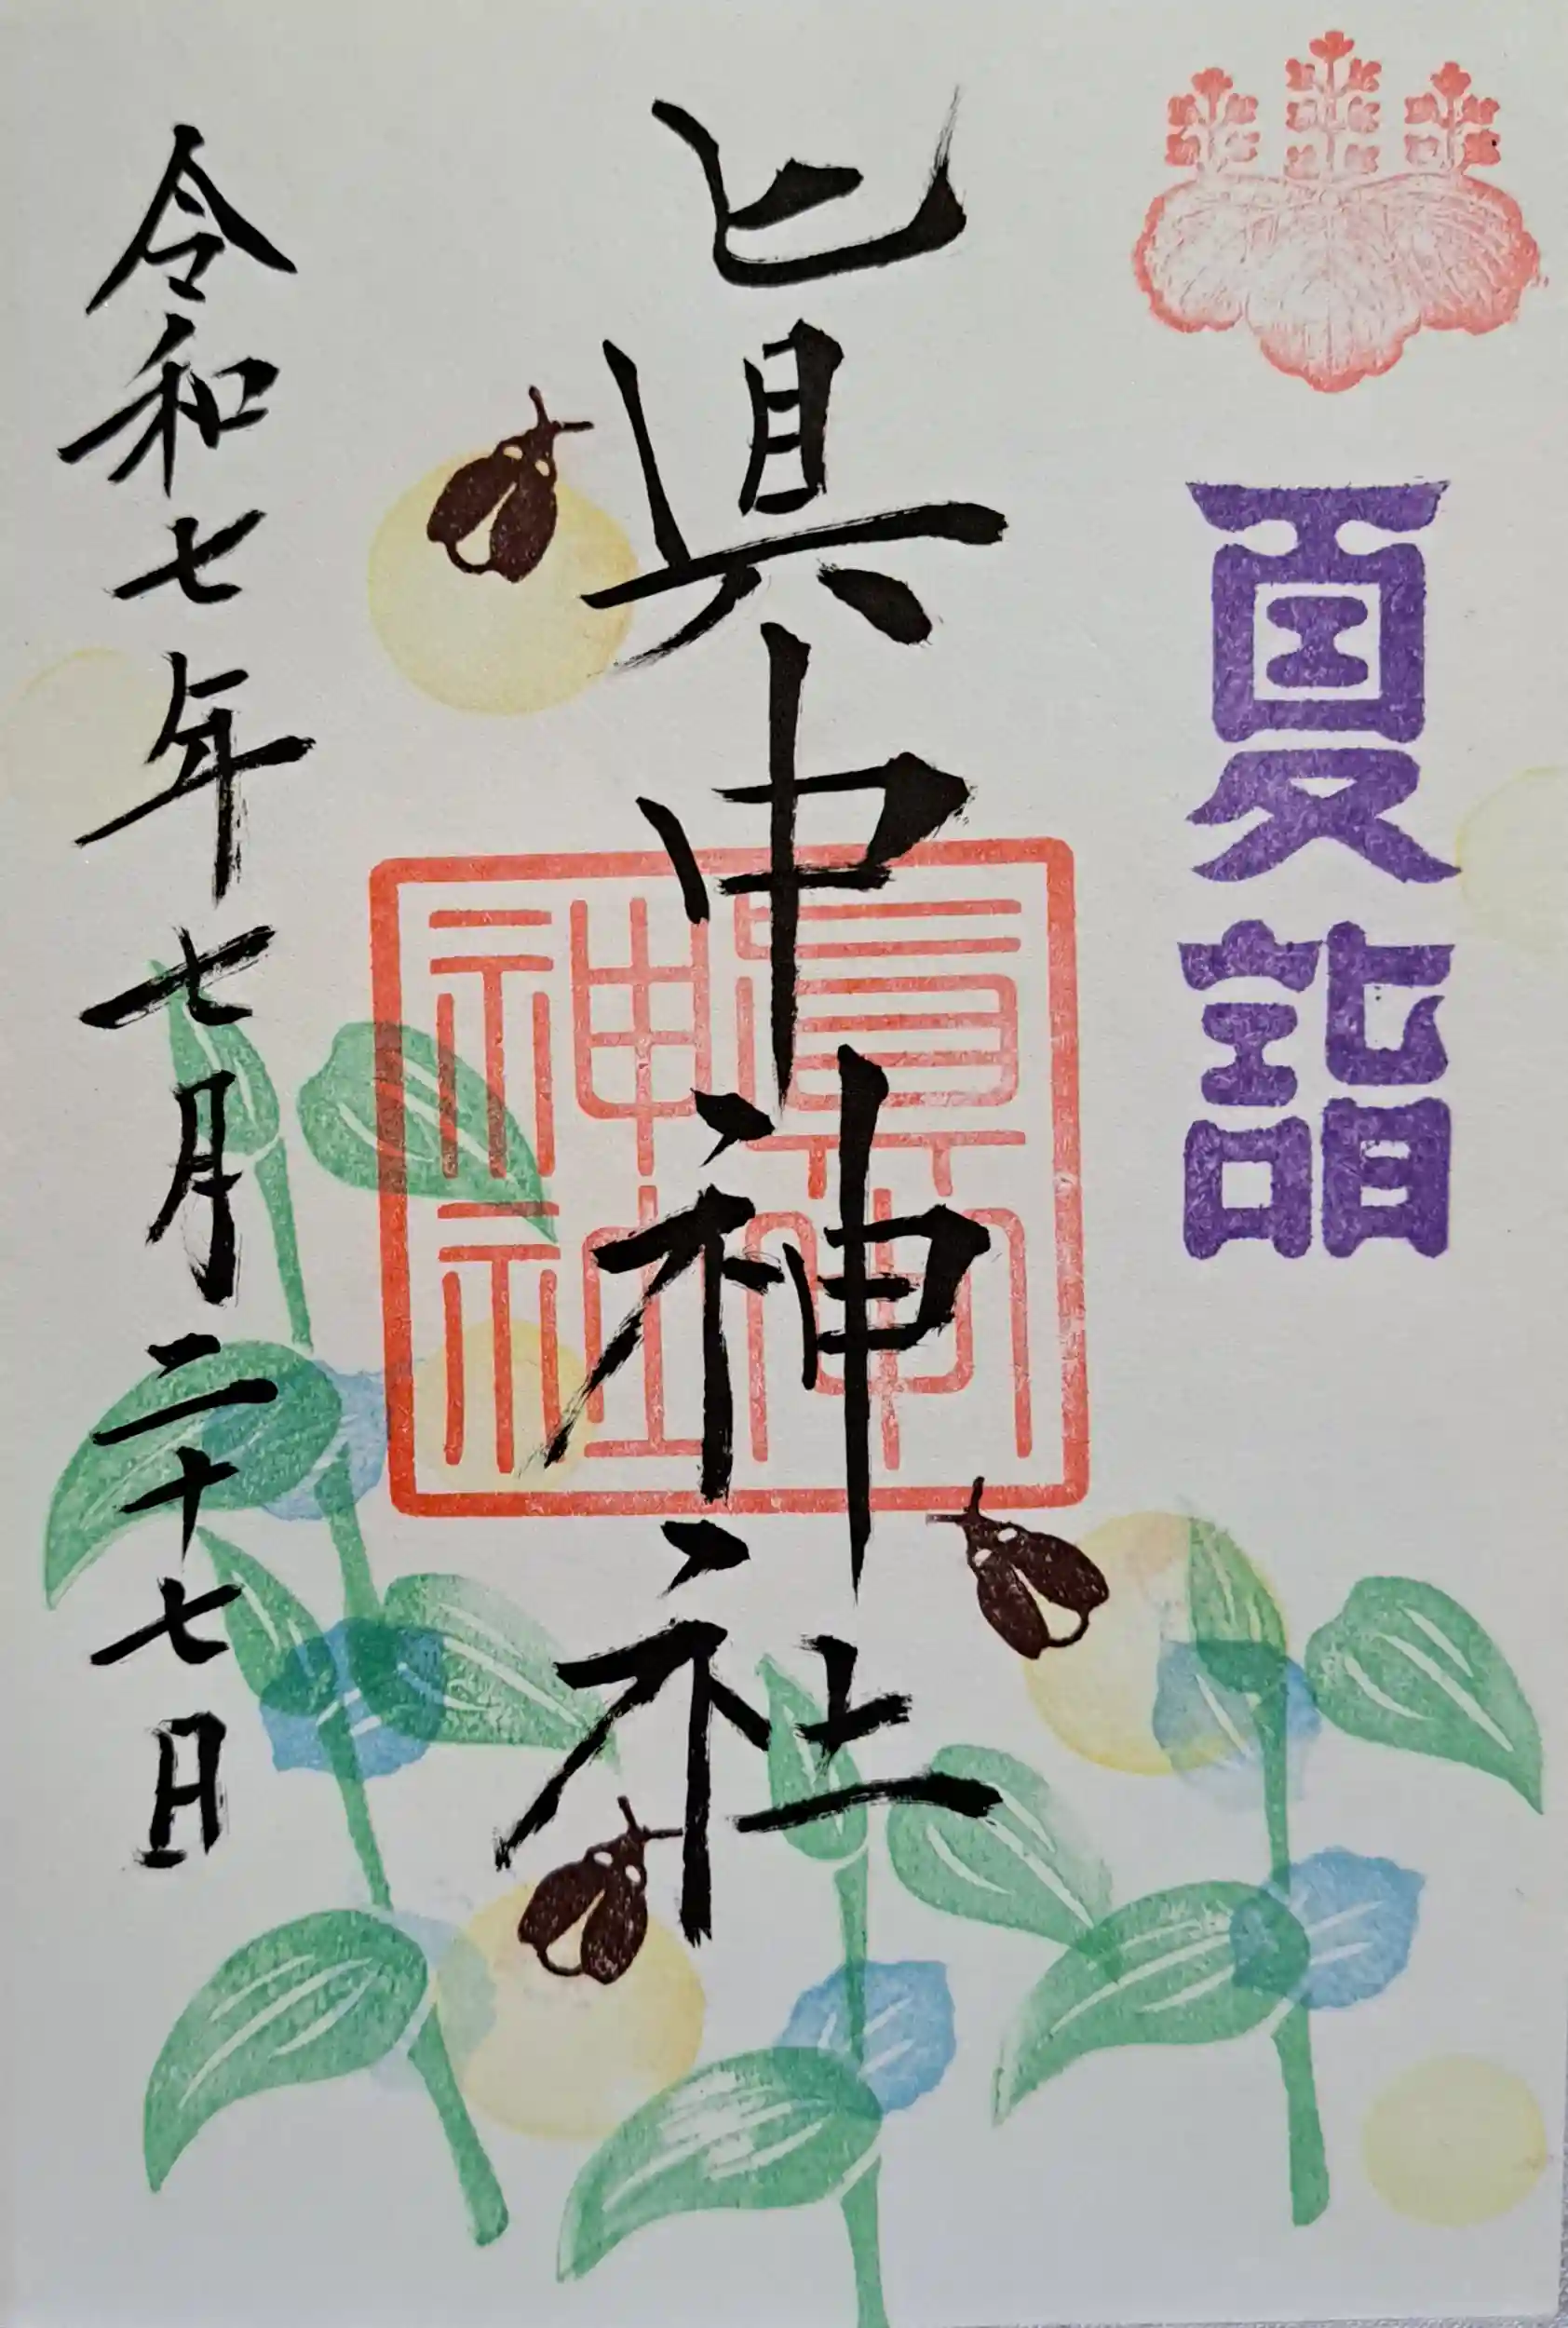 夏詣
眞中神社
令和七年七月二十七日
眞中神社